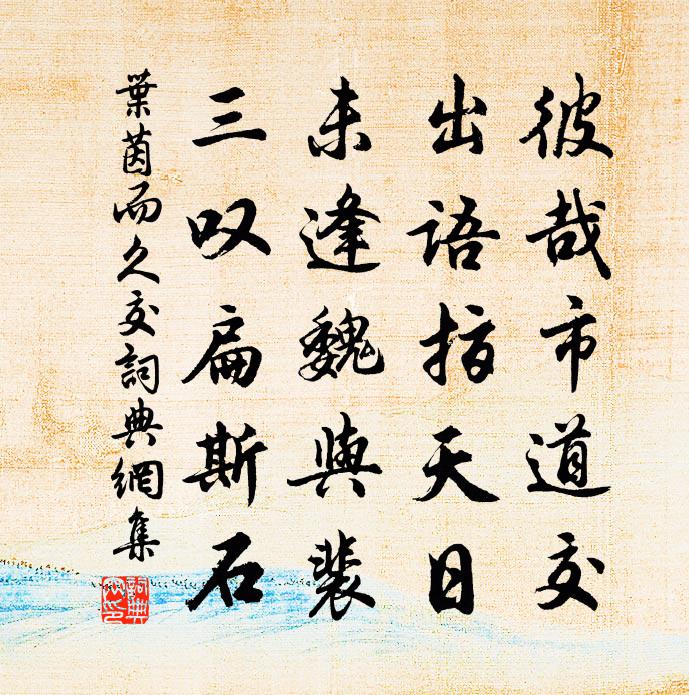 彼哉市道交
出语指天日
未逢魏与裴
三叹扁斯石
葉茵而久交詞典網集